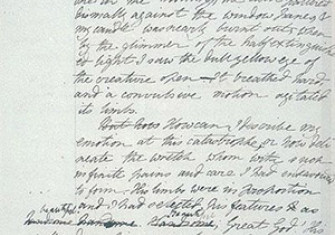 dismally against the window panes, &
my candle was nearly burnt out, when
by the glimmer of the half extinguish-
ed light I saw the dull yellow eye of
the creature open—It breathed hard,
and a convulsive motion agitated
its limbs.
But how How can I describe my
emotion at this catastrophe; or how deli-
neate the wretch whom with such
infinite pains and care I had endeavoured
to form. His limbs were in proportion
and I had selected his features as
beautiful
handsome
handsome Great God! his